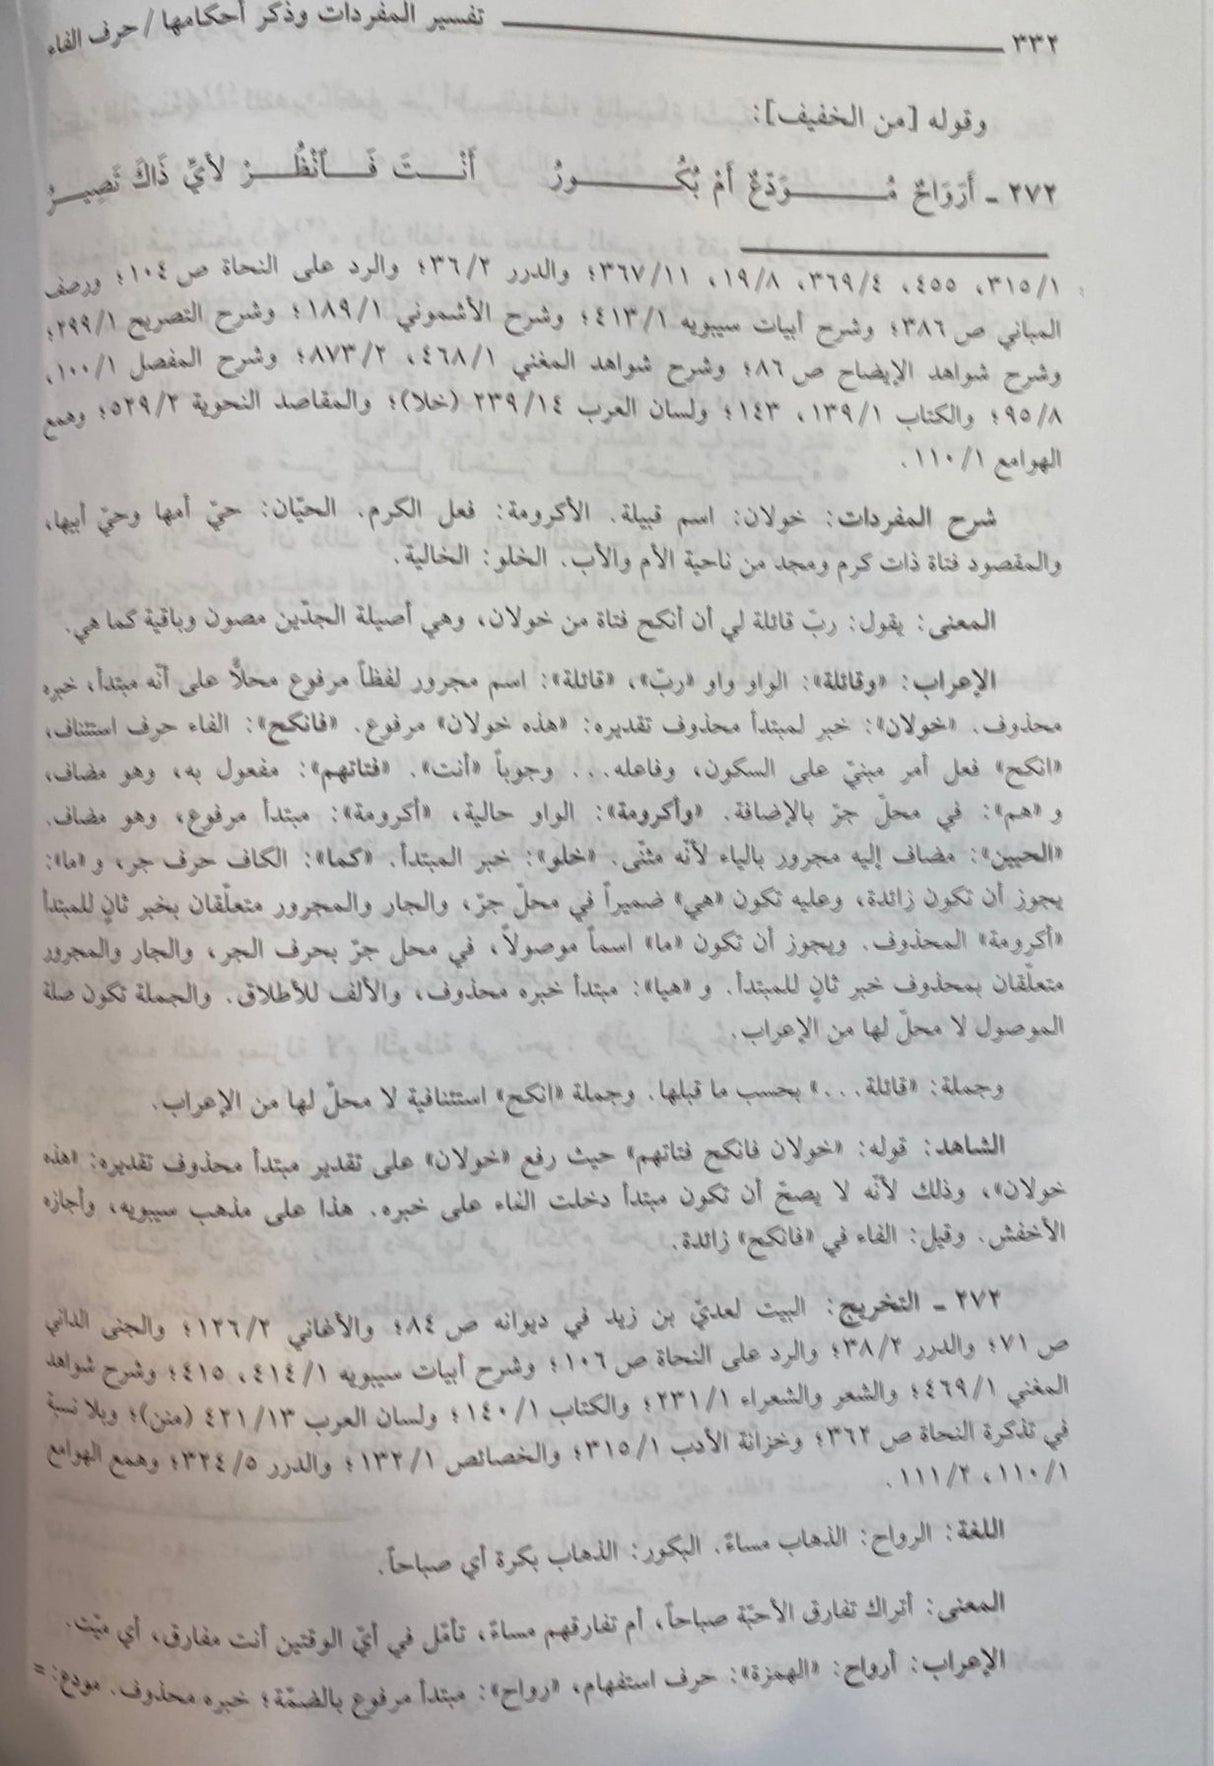 ٣٣٢ تفسير المفردات وذكر أحكامها / حرف الفاء
وقوله [من الخفيف]:
٢٧٢ ـ أَرَوَاحٌ مُـوَدِّعٌ أَمْ بُكُـورُ أَنْـتَ فَـانْظُـرْ لأيِّ ذَاكَ تَصِيـرُ
٣١٥/١، ٤٥٥، ٣٦٩/٤، ١٩/٨، ٣٦٧/١١؛ والدرر ٣٦/٢؛ والرد على النحاة ص ١٠٤؛ ورصف
المباني ص ٣٨٦؛ وشرح أبيات سيبويه ٤١٣/١؛ وشرح الأشموني ١٨٩/١؛ وشرح التصريح ٢٩٩/١،
وشرح شواهد الإيضاح ص ٨٦؛ وشرح شواهد المغني ٤٦٨/١، ٨٧٣/٢؛ وشرح المفصل ١٠٠/١،
٩٥/٨؛ والكتاب ١٣٩/١، ١٤٣؛ ولسان العرب ٢٣٩/١٤ (خلا)؛ والمقاصد النحوية ٥٢٩/٢؛ وهمع
الهوامع ١١٠/١.
شرح المفردات: خولان: اسم قبيلة. الأكرومة: فعل الكرم. الحيّان: حيّ أمها وحيّ أبيها،
والمقصود فتاة ذات كرم ومجد من ناحية الأم والأب. الخلو: الخالية.
المعنى: يقول: ربّ قائلة لي أن أنكح فتاة من خولان، وهي أصيلة الجدّين مصون وباقية كما هي.
الإعراب: «وقائلة»: الواو واو «ربّ»، «قائلة»: اسم مجرور لفظاً مرفوع محلاًّ على أنّه مبتدأ، خبره
محذوف. «خولان»: خبر لمبتدأ محذوف تقديره: «هذه خولان» مرفوع. «فانكح»: الفاء حرف استئناف،
«انكح» فعل أمر مبنيّ على السكون، وفاعله... وجوباً «أنت». «فتاتهم»: مفعول به، وهو مضاف،
و«هم»: في محلّ جرّ بالإضافة. «وأكرومة»: الواو حالية، «أكرومة»: مبتدأ مرفوع، وهو مضاف.
«الحيين»: مضاف إليه مجرور بالياء لأنّه مثنّى. «خلو»: خبر المبتدأ. «كما»: الكاف حرف جر، و«ما»:
يجوز أن تكون زائدة، وعليه تكون «هي» ضميراً في محلّ جرّ، والجار والمجرور متعلّقان بخبر ثانٍ للمبتدأ
«أكرومة» المحذوف. ويجوز أن تكون «ما» اسماً موصولاً، في محل جرّ بحرف الجر، والجار والمجرور
متعلّقان بمحذوف خبر ثانٍ للمبتدأ. و«هيا»: مبتدأ خبره محذوف، والألف للأطلاق. والجملة تكون صلة
الموصول لا محلّ لها من الإعراب.
وجملة: «قائلة...» بحسب ما قبلها. وجملة «انكح» استئنافية لا محلّ لها من الإعراب.
الشاهد: قوله: «خولان فانكح فتاتهم» حيث رفع «خولان» على تقدير مبتدأ محذوف تقديره: «هذه
خولان»، وذلك لأنّه لا يصحّ أن تكون مبتدأ دخلت الفاء على خبره. هذا على مذهب سيبويه، وأجازه
الأخفش. وقيل: الفاء في «فانكح» زائدة.
٢٧٢ ـ التخريج: البيت لعديّ بن زيد في ديوانه ص ٨٤؛ والأغاني ١٢٦/٢؛ والجنى الداني
ص ٧١؛ والدرر ٣٨/٢؛ والرد على النحاة ص ١٠٦؛ وشرح أبيات سيبويه ٤١٤/١، ٤١٥؛ وشرح شواهد
المغني ٤٦٩/١؛ والشعر والشعراء ٢٣١/١؛ والكتاب ١٤٠/١؛ ولسان العرب ٤٢١/١٣ (منن)؛ وبلا نسبة
في تذكرة النحاة ص ٣٦٢؛ وخزانة الأدب ٣١٥/١؛ والخصائص ١٣٢/١؛ والدرر ٣٢٤/٥؛ وهمع الهوامع
١١٠/١، ١١١/٢.
اللغة: الرواح: الذهاب مساءً. البكور: الذهاب بكرة أي صباحاً.
المعنى: أتراك تفارق الأحبّة صباحاً، أم تفارقهم مساءً، تأمّل في أيّ الوقتين أنت مفارق، أي ميّت.
الإعراب: أرواح: «الهمزة»: حرف استفهام، «رواح»: مبتدأ مرفوع بالضمّة؛ خبره محذوف. مودع: =